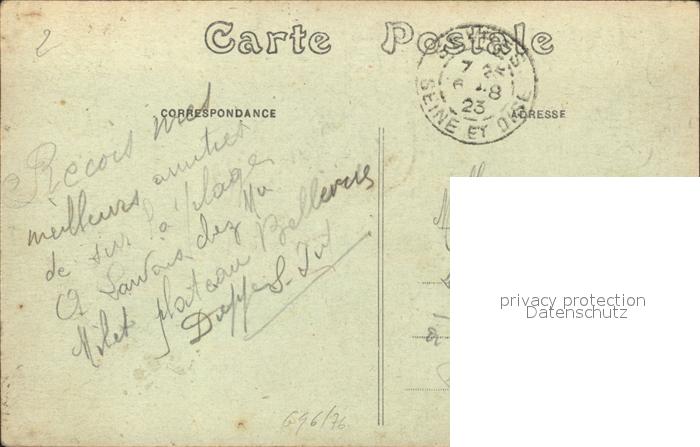 2
Carte Postale
SEINE ET OISE
7
6 - 8
23
CORRESPONDANCE
ADRESSE
Recois mes
meilleurs amitiés
de sur la plage
chez Mr
Milet plateau Bellevue
Dieppe S. Inf
privacy protection
Datenschutz
696/76